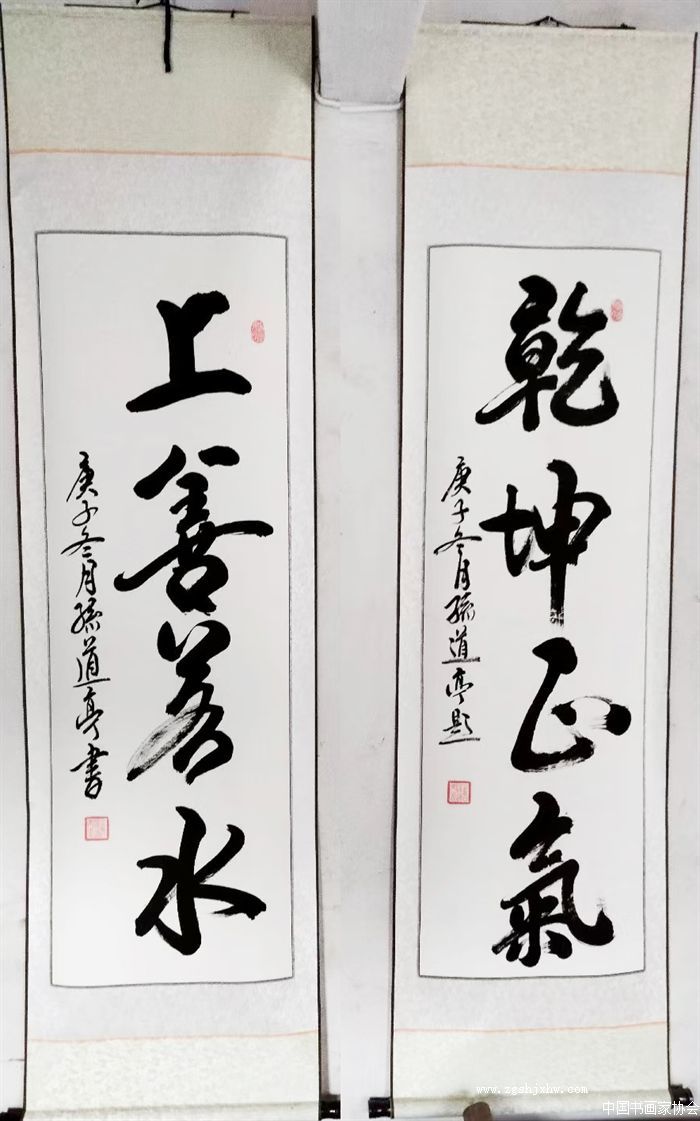 乾坤正氣
庚子冬月孫道亭題
上善若水
庚子冬月孫道亭書
www.zgshjxhw.com
中国书画家协会